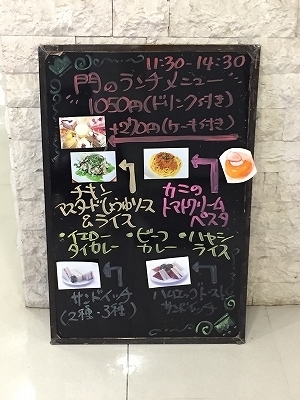 11:30-14:30
門のランチメニュー
1050円(ドリンク付き)
+270円(ケーキ付き)
チキン
マスタードしょうゆソース
&ライス
カニの
トマトクリーム
パスタ
・イエロー
タイカレー
・ビーフ
カレー
・ハヤシ
ライス
サンドイッチ
(2種・3種)
ハムエッグトースト
サンドイッチ